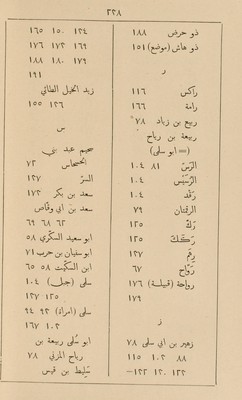 ٢٢٨
ذو حرض ١٨٨
ذو هاش (موضع) ١٥١
ر
راكس ١١٦
رامة ١٦٦
ربيع بن زياد ٧٨
ربيعة بن رياح
(= ابو سلمى)
الرّسّ ٨١ ١٠٤
الرُّسَيس ١٠٤
رَقد ١٠٤
الرقمتان ٧٩
رَكّ ١٢٥
رَكَك ١٢٥
رِمَم ١٢٧
رَوّاح ٦٧
رواحة (قبيلة) ١٧٦
١٧٩
ز
زهير بن ابي سلمى ٧٨
٨٨ ١٠٢ ١١٥
١٢٢ ١٢٠ ١٢٢–
١٢٤ ١٥٠ ١٦٥
١٦٩ ١٧٢ ١٧٦
١٧٩ ١٨٠ ١٨٨
١٩١
زيد الخيل الطائي
١٢٦ ١٥٥
س
سحيم عبد بني
الحسحاس ٧٢
السرّ ١٢٧
سعد بن بكر ١٧٢
سعد بن ابي وقّاص
٦٢ ٦٨ ٦٩
ابو سعيد السكّري ٥٨
ابو سفيان بن حرب ٧١
ابن السكّيت ٥٨ ٦٥
سلمى (جبل) ١٠٤
١٢٥ ١٢٧
سلمى (امرأة) ٩٢ ٩٤
١٠٢ ١٦٧
ابو سُلمى ربيعة بن
رياح المزني ٧٨
سَليط بن قيس